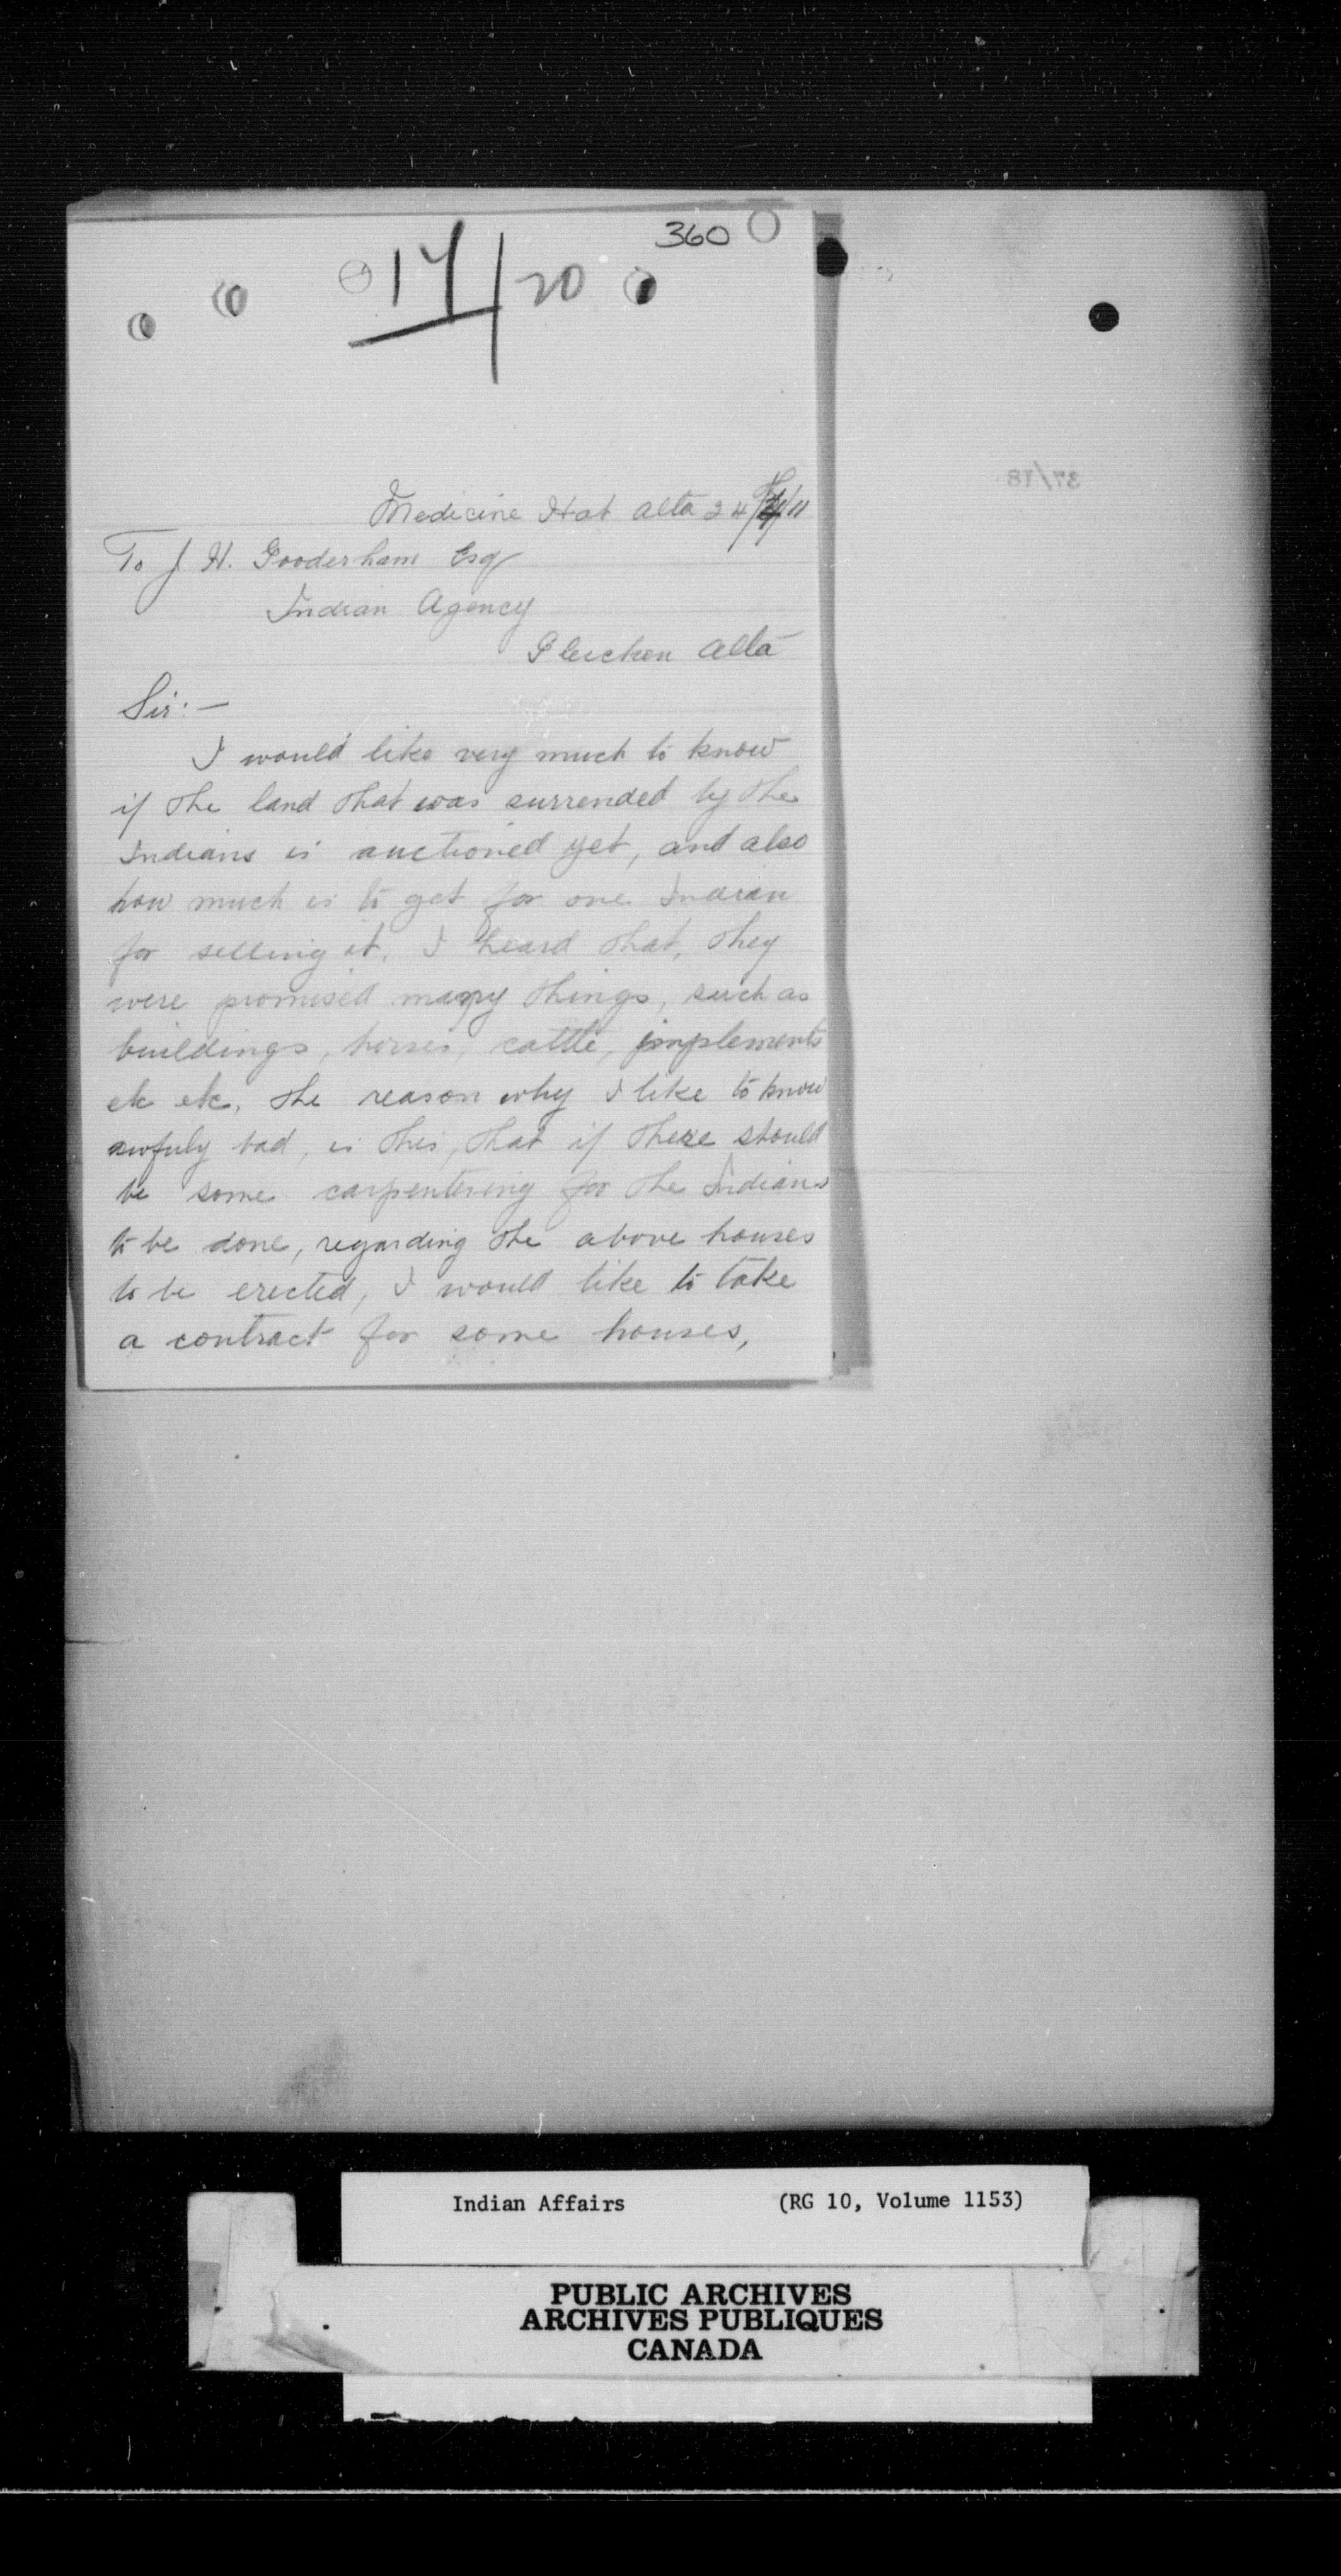 360
17/20
Medicine Hat Alta 24/4/11
To J. H. Gooderham Esq
Indian Agency
Gleichen Alta
Sir:—
I would like very much to know
if the land that was surrended by the
Indians is auctioned yet, and also
how much is to get for one Indian
for selling it. I heard that, they
were promised many things, such as
buildings, horses, cattle, implements
etc etc, the reason why I like to know
awfuly bad, is this, that if there should
be some carpentering for the Indians
to be done, regarding the above houses
to be erected, I would like to take
a contract for some houses,
37/18
Indian Affairs (RG 10, Volume 1153)
PUBLIC ARCHIVES
ARCHIVES PUBLIQUES
CANADA